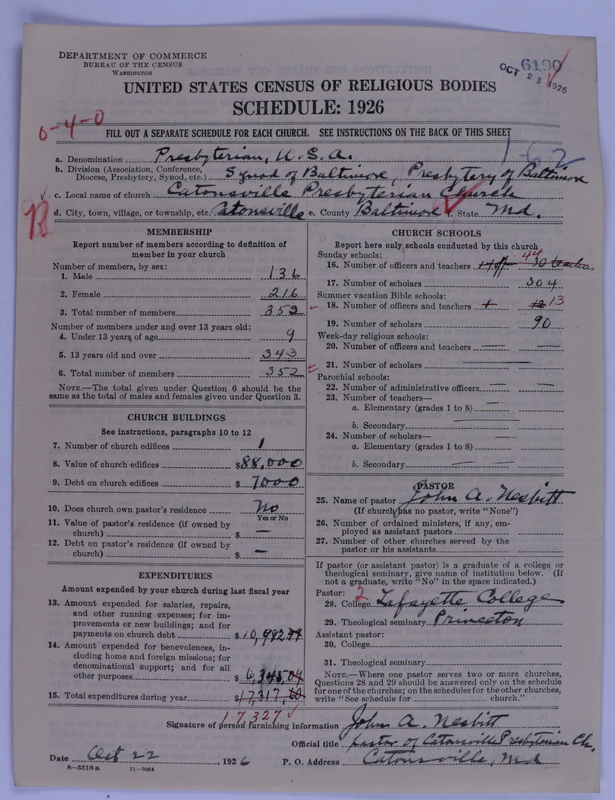 DEPARTMENT OF COMMERCE
BUREAU OF THE CENSUS
WASHINGTON
6190
OCT 23 1926
UNITED STATES CENSUS OF RELIGIOUS BODIES
SCHEDULE: 1926
0-4-0
FILL OUT A SEPARATE SCHEDULE FOR EACH CHURCH. SEE INSTRUCTIONS ON THE BACK OF THIS SHEET
1-62
a. Denomination Presbyterian, U.S.A.
b. Division (Association, Conference, Diocese, Presbytery, Synod, etc.) Synod of Baltimore, Presbytery of Baltimore
c. Local name of church Catonsville Presbyterian Church
d. City, town, village, or township, etc. Catonsville e. County Baltimore f. State Md.
MEMBERSHIP
Report number of members according to definition of
member in your church
Number of members, by sex:
1. Male 136
2. Female 216
3. Total number of members 352
Number of members under and over 13 years old:
4. Under 13 years of age 9
5. 13 years old and over 343
6. Total number of members 352
NOTE.—The total given under Question 6 should be
same as the total of males and females given under Question 3.
CHURCH BUILDINGS
See instructions, paragraphs 10 to 12
7. Number of church edifices 1
8. Value of church edifices $88,000
9. Debt on church edifices $7000
10. Does church own pastor's residence No
Yes or No
11. Value of pastor's residence (if owned by
church) $ —
12. Debt on pastor's residence (if owned by
church) $ —
EXPENDITURES
Amount expended by your church during last fiscal year
13. Amount expended for salaries, repairs,
and other running expenses; for im-
provements or new buildings; and for
payments on church debt $10,982
14. Amount expended for benevolences, in-
cluding home and foreign missions; for
denominational support; and for all
other purposes $6,345.04
15. Total expenditures during year $17,317
17,327
CHURCH SCHOOLS
Report here only schools conducted by this church
Sunday schools:
16. Number of officers and teachers 44 30 teachers
17. Number of scholars 304
Summer vacation Bible schools:
18. Number of officers and teachers 1 12 13
19. Number of scholars 90
Week-day religious schools:
20. Number of officers and teachers —
21. Number of scholars —
Parochial schools:
22. Number of administrative officers —
23. Number of teachers—
a. Elementary (grades 1 to 8) —
b. Secondary —
24. Number of scholars—
a. Elementary (grades 1 to 8) —
b. Secondary —
PASTOR
25. Name of pastor John A. Nesbitt
(If church has no pastor, write "None")
26. Number of ordained ministers, if any, em-
ployed as assistant pastors
27. Number of other churches served by the
pastor or his assistants
If pastor (or assistant pastor) is a graduate of a college or
theological seminary, give name of institution below. (If
not a graduate, write "No" in the space indicated.)
Pastor: 2
28. College Lafayette College
29. Theological seminary Princeton
Assistant pastor:
30. College
31. Theological seminary
NOTE.—Where one pastor serves two or more churches,
Questions 28 and 29 should be answered only on the schedule
for one of the churches; on the schedules for the other churches,
write "See schedule for church."
Signature of person furnishing information John A. Nesbitt
Official title pastor of Catonsville Presbyterian Ch.
Date Oct 22, 1926 P. O. Address Catonsville, Md
8—5518a 11—9054